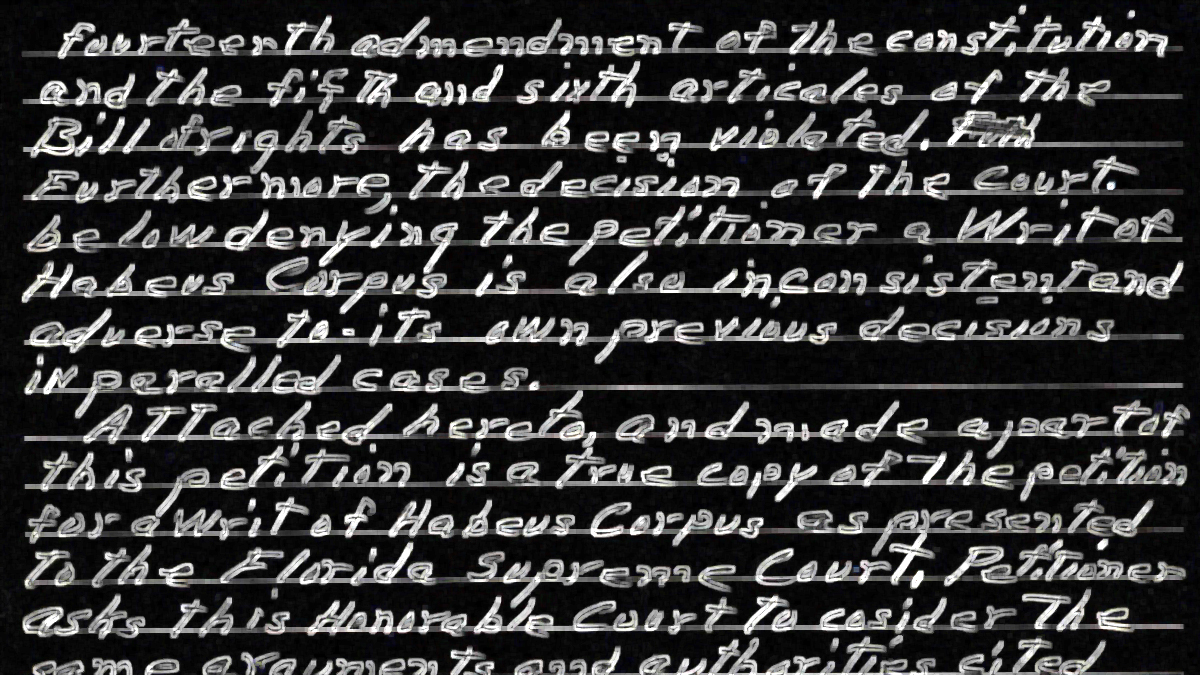 fourteenth admendment of the constitution
and the fifth and sixth articales of the
Bill of rights has been violated.
Furthermore, the decision of the Court.
below denying the petitioner a Writ of
Habeus Corpus is also inconsistent and
adverse to-its own previous decisions
in paralled cases.
Attached hereto, and made a part of
this petition is a true copy of the petition
for a Writ of Habeus Corpus as presented
to the Florida Supreme Court. Petitioner
asks this Honorable Court to cosider The
same arguments and authorities cited